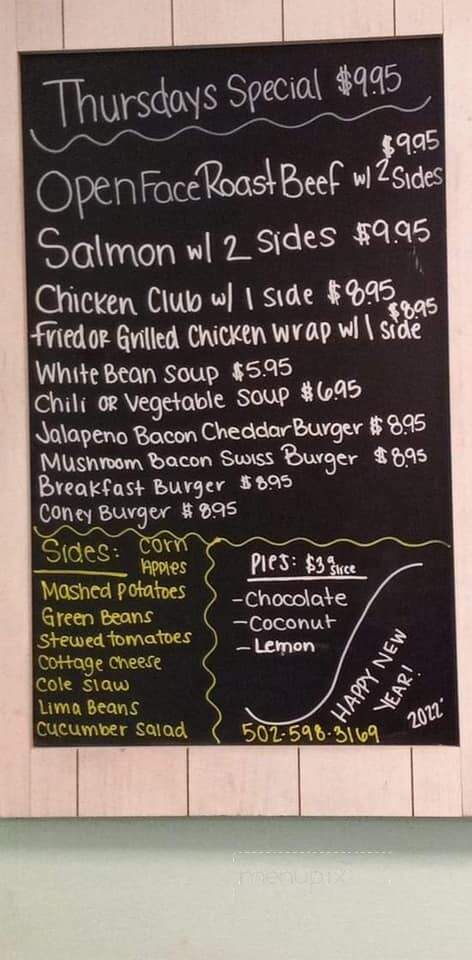 Thursdays Special $9.95
$9.95
Open Face Roast Beef w/ 2 Sides
Salmon w/ 2 Sides $9.95
Chicken Club w/ 1 side $8.95
$8.95
Fried or Grilled Chicken wrap w/ 1 side
White Bean Soup $5.95
Chili or Vegetable Soup $6.95
Jalapeno Bacon Cheddar Burger $8.95
Mushroom Bacon Swiss Burger $8.95
Breakfast Burger $8.95
Coney Burger $8.95
Sides: Corn
Apples
Mashed Potatoes
Green Beans
Stewed tomatoes
Cottage Cheese
Cole Slaw
Lima Beans
Cucumber Salad
Pies: $3 a slice
-Chocolate
-Coconut
-Lemon
HAPPY NEW
YEAR!
2022
502-598-3169
menupix